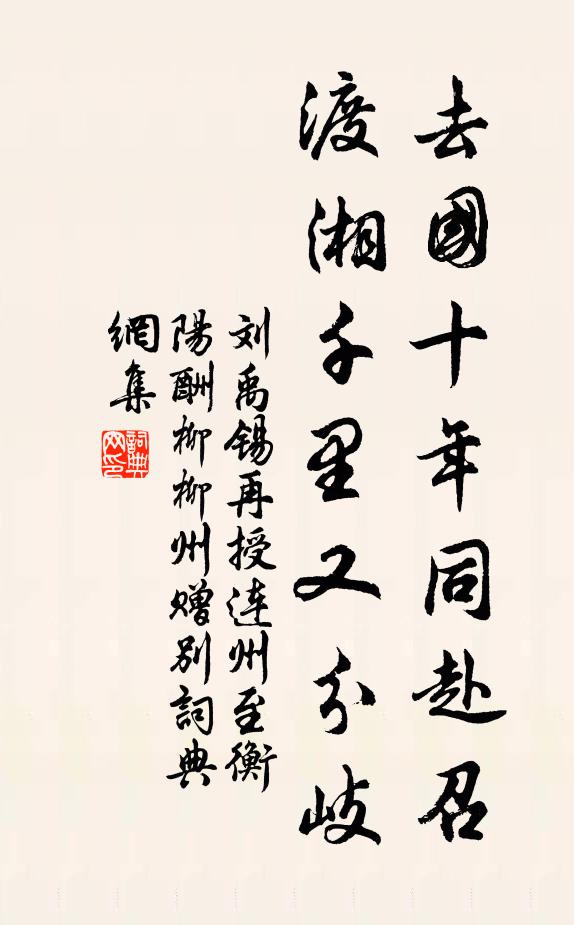 去國十年同赴召
渡湘千里又分岐
刘禹锡再授连州至衡
陽酬柳柳州赠别詞典
網集
詞典
网印